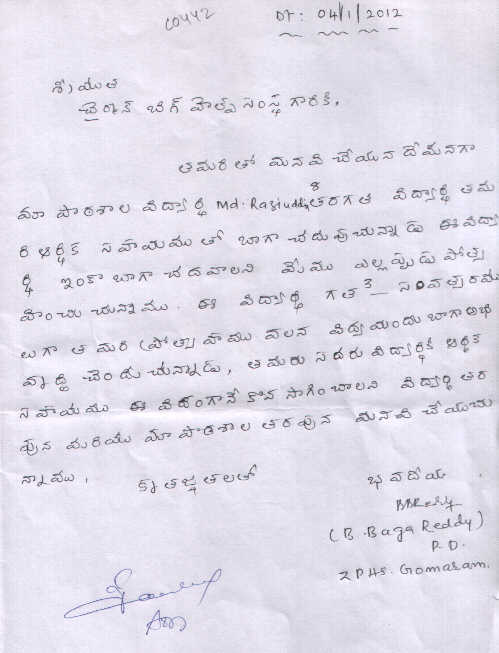 C0442
DT: 04/1/2012
శ్రీయుత
చైల్డ్ బిగ్ హెల్ప్ సంస్థ గారికి,
తమరితో మనవి చేయున దేమనగా
మా పాఠశాల విద్యార్థి Md. Rasiuddin 8 తరగతి విద్యార్థి తమ
రి ఆర్థిక సహాయము తో బాగా చదువుచున్నాడు ఈ విద్యా
ర్థి ఇంకా బాగా చదవాలని మేము ఎల్లప్పుడు ప్రోత్స
హించు చున్నాము. ఈ విద్యార్థి గత 3 సంవత్సరము
లుగా తమరి ప్రోత్సాహము వలన విద్య యందు బాగా అభి
వృద్ధి చెందుచున్నాడు, తమరు సదరు విద్యార్థికి ఆర్థిక
సహాయము ఈ విధంగానే కొన సాగించాలని విద్యార్థి తర
పున మరియు మా పాఠశాల తరపున మనవి చేయుచు
న్నాము.
కృతజ్ఞతలతో
భవదీయ
BBReddy
(B. Baga Reddy)
P.D.
ZPHS. Gomaram.